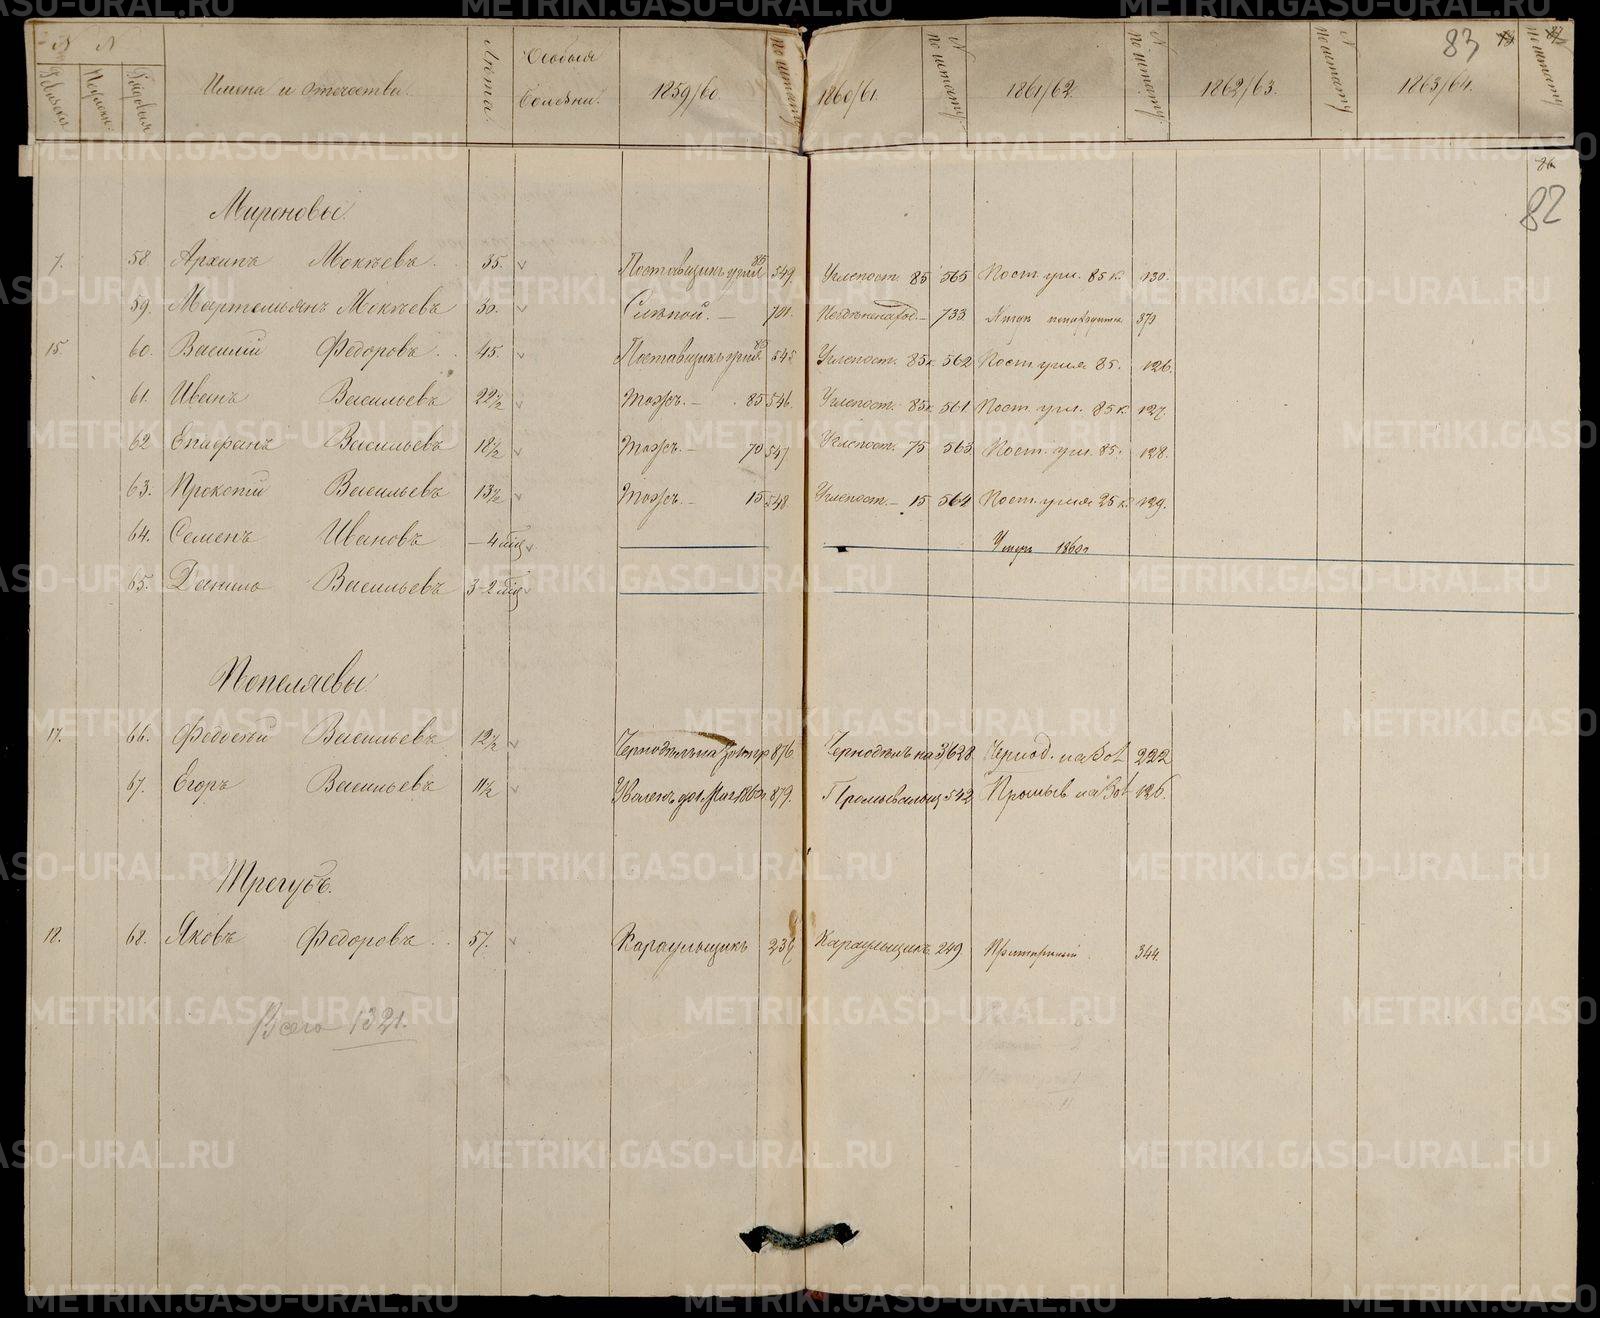 83
№ №
Имена и отчества.
Лѣта.
Особыя
болѣзни.
1859/60.
по штату
1860/61.
№ по штату.
1861/62.
№ по штату.
1862/63.
№ по штату
1863/64.
№ по штату
82
Мироновы.
7. 58. Архипъ Мокѣевъ. 35. Поставщикъ угля 85 549. Углепост. 85 565 Пост. угл. 85 к. 130.
59. Мартемьянъ Мокѣевъ 30. Слѣпой. — 701. 733 379
15. 60. Василій Федоровъ. 45. Поставщикъ угля 85 545 Углепост. 85 к. 562 Пост. угля 85. 126.
61. Иванъ Васильевъ 22½ Тожъ. — 85 546. Углепост. 85 к. 561 Пост. угл. 85 к. 127.
62 Епифанъ Васильевъ 18½ Тожъ. — 70 547 Углепост. 75 563 Пост. угл. 85. 128.
63. Прокопій Васильевъ 13½ Тожъ. — 15 548 Углепост. — 15 564 Пост. угля 25 к. 129.
64. Семенъ Ивановъ — 4 мѣс Умеръ 1860
65. Данило Васильевъ 3-2 мѣс
Попеляевы.
17. 66. Федосѣй Васильевъ 12½ 876 Чернодѣлъ на 3 628 Чернод. на 222
67. Егоръ Васильевъ 11½ Уволенъ до 1 1860 879. Промывальщ 542 Промыв на 126.
Трегубъ.
18. 68. Яковъ Федоровъ 57. Караульщикъ 236 Караульщикъ. 249 344.
Всего 1321.
METRIKI.GASO-URAL.RU